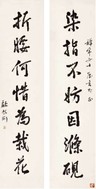 染指不妨因滌硯
折腰何惜為栽花